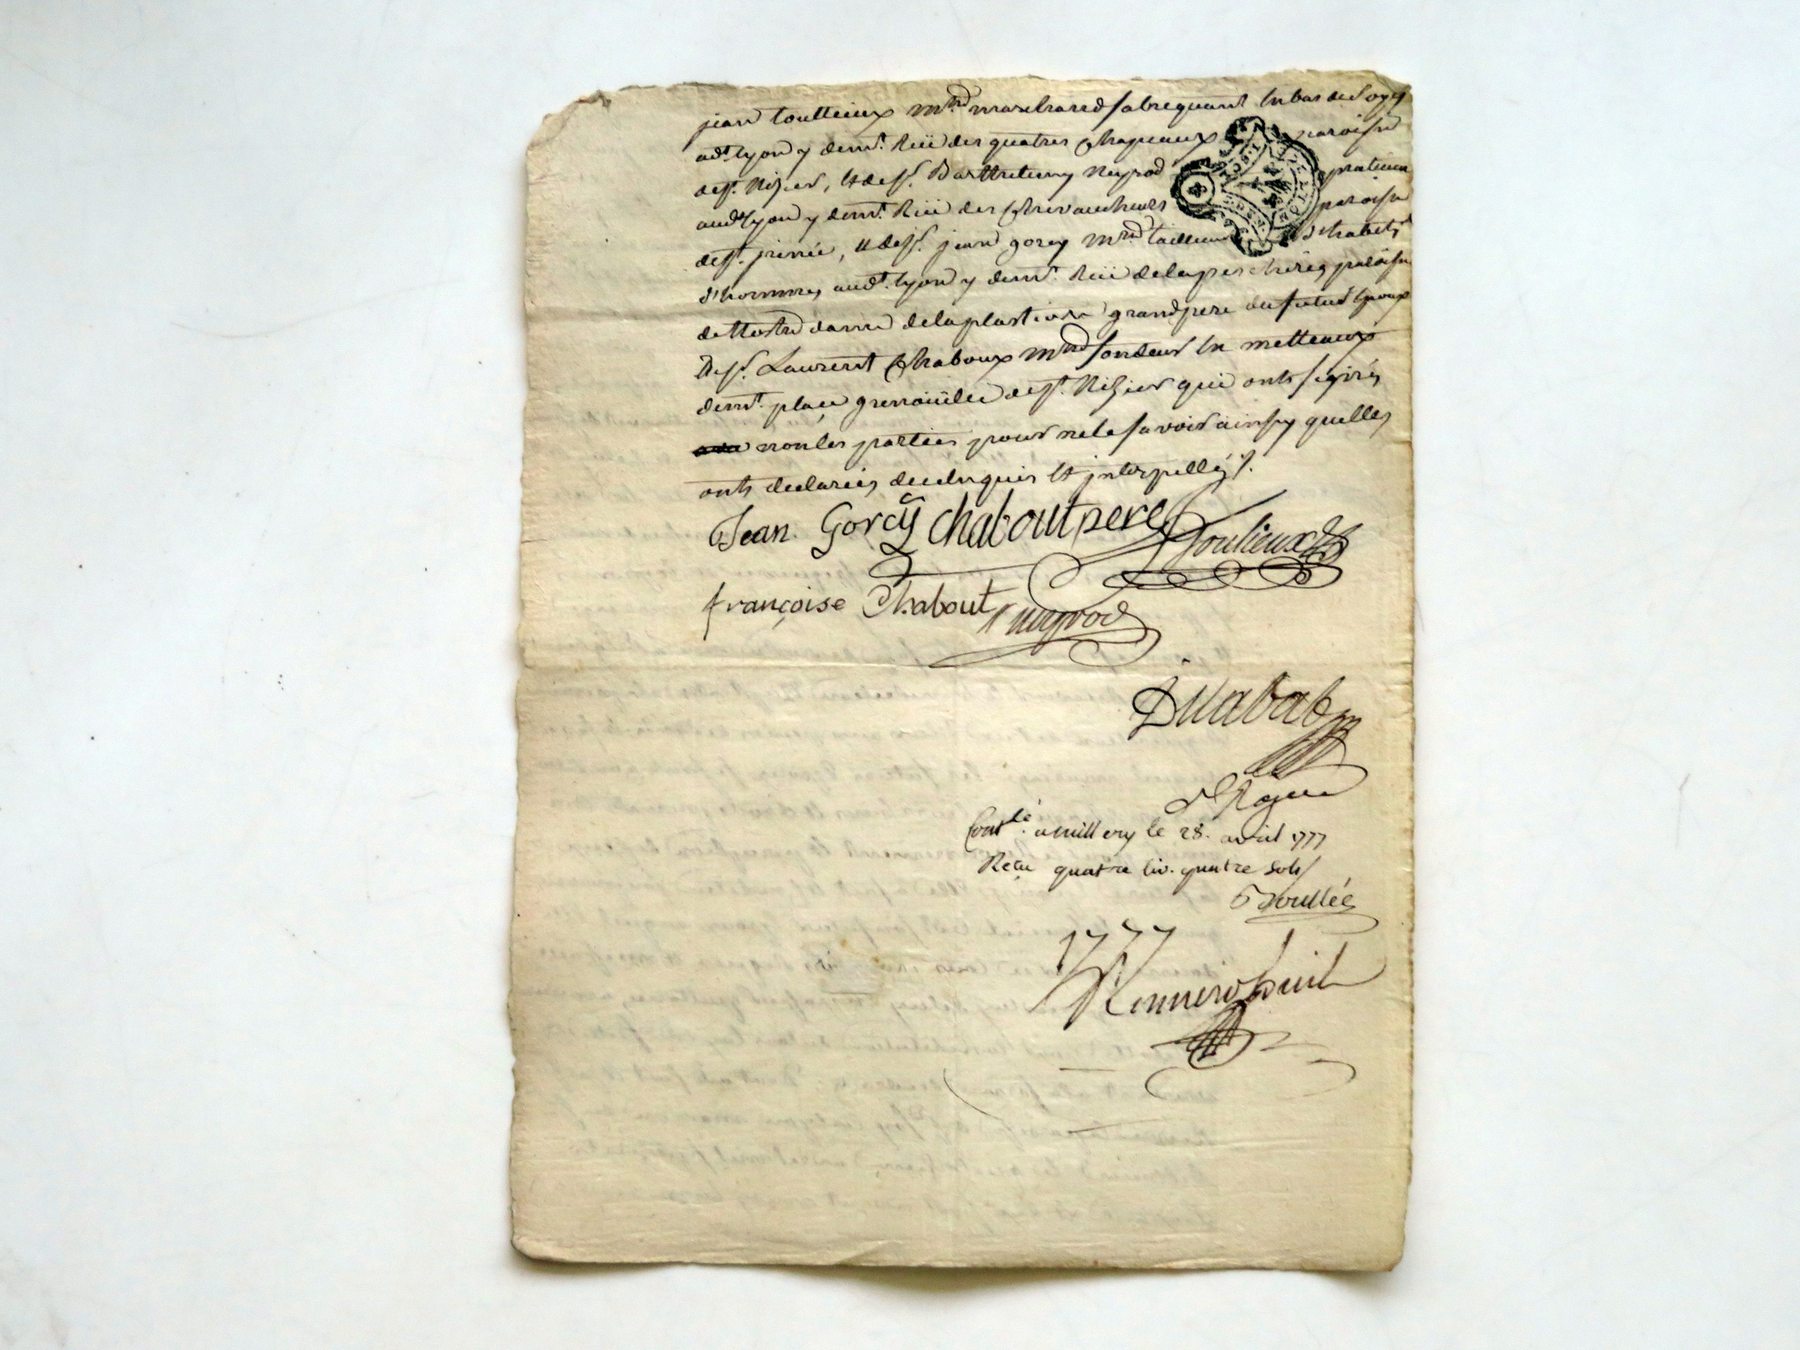 jean toullieux m.rd marchand fabriquant en bas de soye
ad.t lyon y dem.t Rüe des quatres Chapeaux paroisse
de s.t Nizier, et de s.r Barthelemy Neyrod praticien
aud.t lyon y dem.t Rüe des paroisse
de s.t jrénée, et de s.r jean gorcy m.rd tailleur d'habits
d'hommes aud.t lyon y dem.t Rüe de la pescherie paroisse
de Nostre dame de la plastiere grand pere du futur Epoux
Et s.r Laurent Chaboux m.rd fondeur en metteaux
dem.t place grenoüille de s.t Nizier qui ont signés
non les parties pour ne le savoir ainsy quelles
ont declarées de ce enquis et jnterpellés ./.
Jean Gorcÿ Chabout pere Toulieux
françoise Chabout Neyrod
Dunabat
Con.lé a millery le 28. avril 1777
Reçu quatre liv. quatre sols
1777